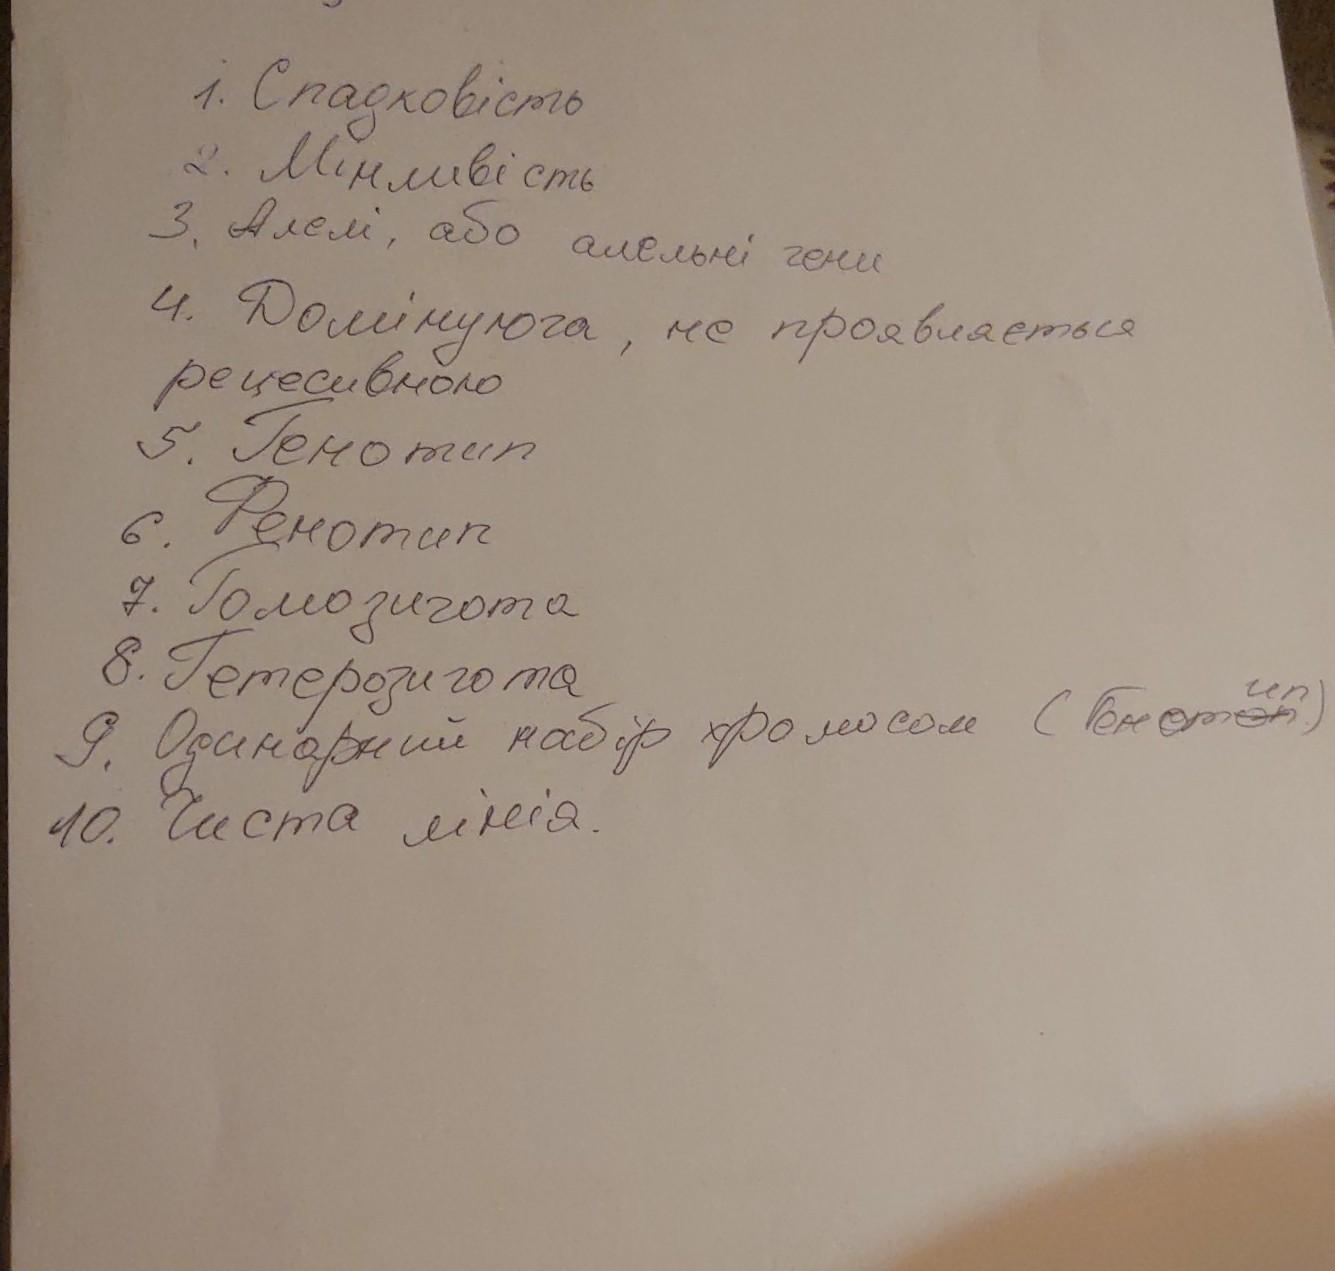 1. Спадковість
2. Мінливість
3. Алелі, або алельні гени
4. Домінуюча, не проявляється
рецесивного
5. Генотип
6. Фенотип
7. Гомозигота
8. Гетерозигота
9. Одинарний набір хромосом (Генотип)
10. Чиста лінія.